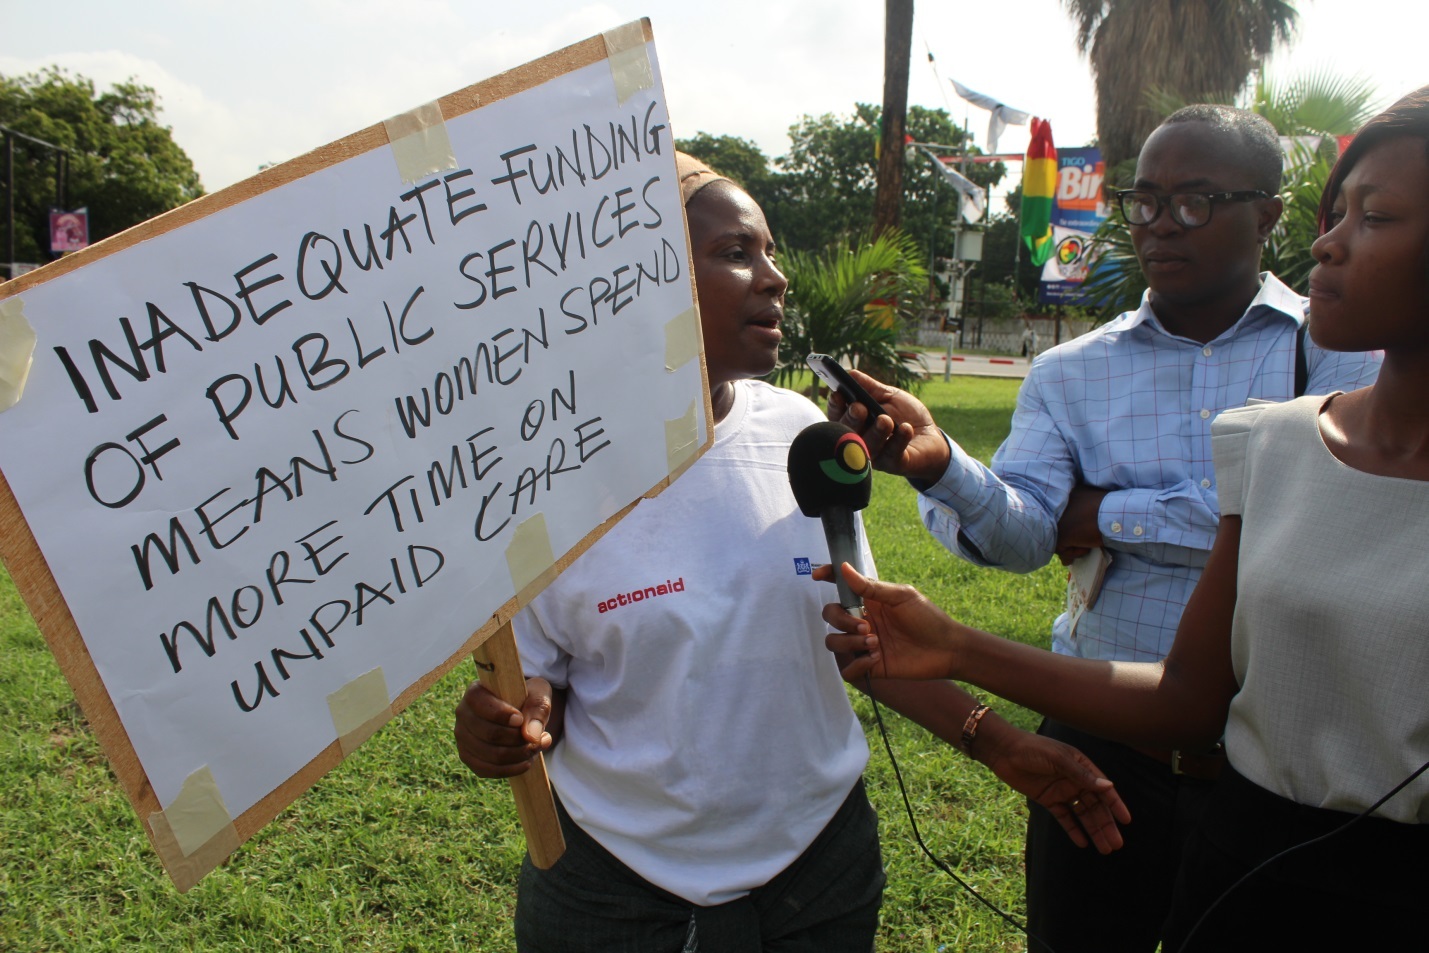 INADEQUATE FUNDING
OF PUBLIC SERVICES
MEANS WOMEN SPEND
MORE TIME ON
UNPAID CARE
act!onaid
TIGO
Bir